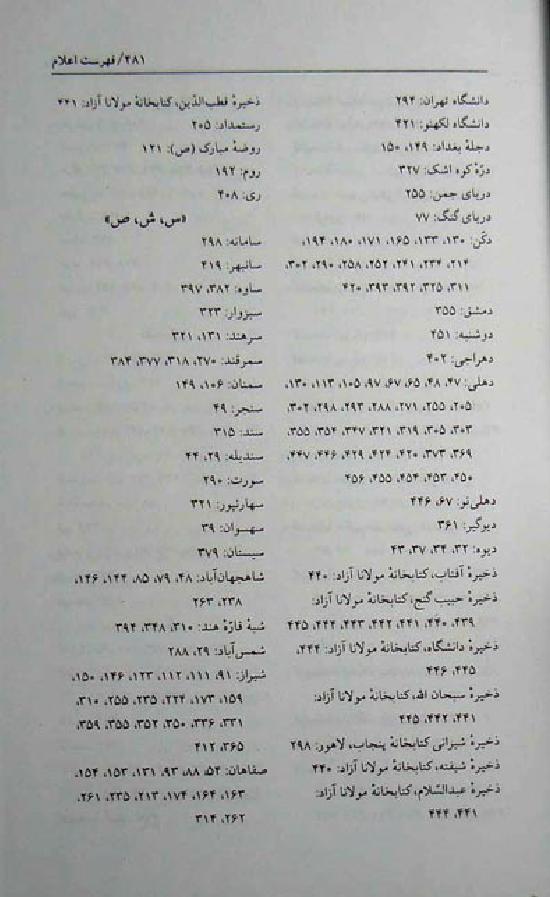 ۴۸۱/ فهرست اعلام
دانشگاه تهران: ۲۹۴
دانشگاه لکهنو: ۴۲۱
دجلهٔ بغداد: ۱۴۹، ۱۵۰
درّهٔ کوه اشک: ۳۲۷
دریای جمن: ۲۵۵
دریای گنگ: ۷۷
دکن: ۱۳۰، ۱۳۳، ۱۶۵، ۱۷۱، ۱۸۰، ۱۹۴،
۲۱۴، ۲۳۴، ۲۴۱، ۲۵۲، ۲۵۸، ۲۹۰، ۳۰۲،
۳۱۱، ۳۲۵، ۳۹۲، ۳۹۳، ۴۲۰
دمشق: ۳۵۵
دوشنبه: ۴۵۱
دهراجی: ۴۰۲
دهلی: ۴۷، ۴۸، ۶۵، ۶۷، ۹۷، ۱۰۵، ۱۱۳، ۱۳۰،
۲۰۵، ۲۵۵، ۲۷۱، ۲۸۸، ۲۹۳، ۲۹۸، ۳۰۲،
۳۰۳، ۳۰۵، ۳۱۹، ۳۲۱، ۳۴۷، ۳۵۴، ۳۵۵،
۳۶۹، ۳۷۳، ۴۲۰، ۴۲۴، ۴۲۹، ۴۴۶، ۴۴۷،
۴۵۰، ۴۵۳، ۴۵۴، ۴۵۵، ۴۵۶
دهلی‌نو: ۶۷، ۴۴۶
دیوگیر: ۳۶۱
دیوه: ۳۲، ۳۴، ۳۷، ۴۳
ذخیرهٔ آفتاب، کتابخانهٔ مولانا آزاد: ۴۴۰
ذخیرهٔ حبیب گنج، کتابخانهٔ مولانا آزاد:
۴۳۹، ۴۴۰، ۴۴۱، ۴۴۲، ۴۴۳، ۴۴۴، ۴۴۵
ذخیرهٔ دانشگاه، کتابخانهٔ مولانا آزاد: ۴۴۴،
۴۴۵، ۴۴۶
ذخیرهٔ سبحان الله، کتابخانهٔ مولانا آزاد:
۴۴۱، ۴۴۲، ۴۴۵
ذخیرهٔ شیرانی کتابخانهٔ پنجاب، لاهور: ۲۹۸
ذخیرهٔ شیفته، کتابخانهٔ مولانا آزاد: ۴۴۰
ذخیرهٔ عبدالسّلام، کتابخانهٔ مولانا آزاد:
۴۴۱، ۴۴۴
ذخیرهٔ قطب‌الدّین، کتابخانهٔ مولانا آزاد: ۴۴۱
رستمداد: ۲۰۵
روضهٔ مبارک (ص): ۱۲۱
روم: ۱۹۲
ری: ۴۰۸
«س، ش، ص»
سامانه: ۲۹۸
سانبهر: ۴۱۹
ساوه: ۳۸۲، ۳۹۷
سبزوار: ۳۲۳
سرهند: ۱۳۱، ۳۲۱
سمرقند: ۲۷۰، ۳۱۸، ۳۷۷، ۳۸۴
سمنان: ۱۰۶، ۱۴۹
سنجر: ۴۹
سند: ۳۱۵
سندیله: ۳۹، ۴۴
سورت: ۲۹۰
سهارنپور: ۳۲۱
سهسوان: ۳۹
سیستان: ۳۷۹
شاهجهان‌آباد: ۴۸، ۷۹، ۸۵، ۱۴۴، ۱۴۶،
۲۳۸، ۲۶۳
شبهٔ قارّهٔ هند: ۳۱۰، ۳۴۸، ۳۹۴
شمس‌آباد: ۲۹، ۲۸۸
شیراز: ۹۱، ۱۱۱، ۱۱۲، ۱۲۳، ۱۴۶، ۱۵۰،
۱۵۹، ۱۷۳، ۲۲۴، ۲۳۵، ۲۵۵، ۳۱۰،
۳۳۱، ۳۳۶، ۳۵۰، ۳۵۲، ۳۵۵، ۳۵۹،
۳۶۵، ۴۱۲
صفاهان: ۵۴، ۸۸، ۹۳، ۱۳۱، ۱۵۳، ۱۵۴،
۱۶۳، ۱۶۴، ۱۷۴، ۲۱۳، ۲۳۵، ۲۶۱،
۲۶۲، ۳۱۴